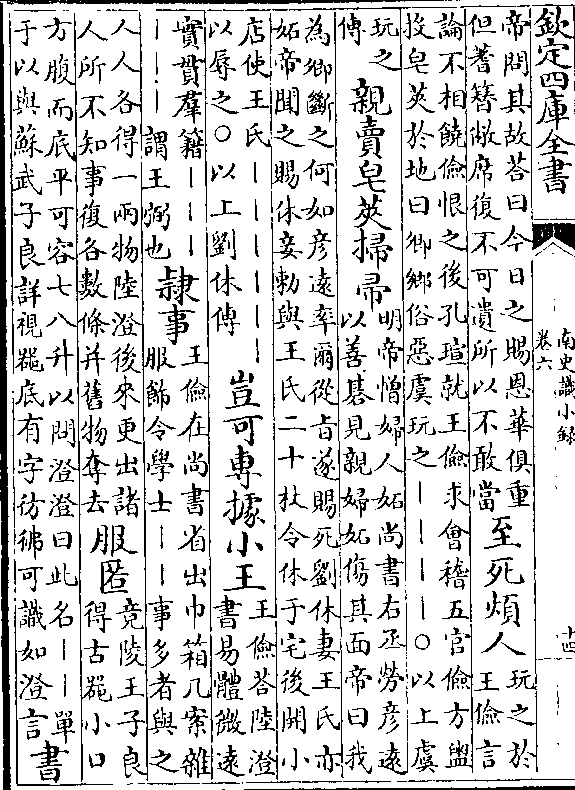 欽定四庫全書
南史識小録
卷六
十四
帝問其故荅曰今日之賜恩華俱重
但蓍簮敝席復不可遺所以不敢當
至死煩人
玩之於
王儉言
論不相饒儉恨之後孔瑄就王儉求會稽五官儉方盥
投皂莢於地曰卿鄉俗惡虞玩之｜｜｜｜○以上虞
玩之
傳
親賣皂莢掃帚
明帝憎婦人妬尚書右丞勞彦遠
以善碁見親婦妬傷其面帝曰我
為卿斷之何如彦遠率爾從旨遂賜死劉休妻王氏亦
妬帝聞之賜休妾勅與王氏二十杖令休于宅後開小
店使王氏｜｜｜｜｜｜
以辱之○以上劉休傳
豈可專據小王
王儉荅陸澄
書易體微遠
實貫羣籍｜｜｜
｜｜｜謂王弼也
隷事
王儉在尚書省出巾箱几案雜
服飾令學士｜｜事多者與之
人人各得一兩物陸澄後來更出諸
人所不知事復各數條并舊物奪去
服匿
竟陵王子良
得古器小口
方腹而底平可容七八升以問澄澄曰此名｜｜單
于以與蘇武子良詳視器底有字彷彿可識如澄言
書